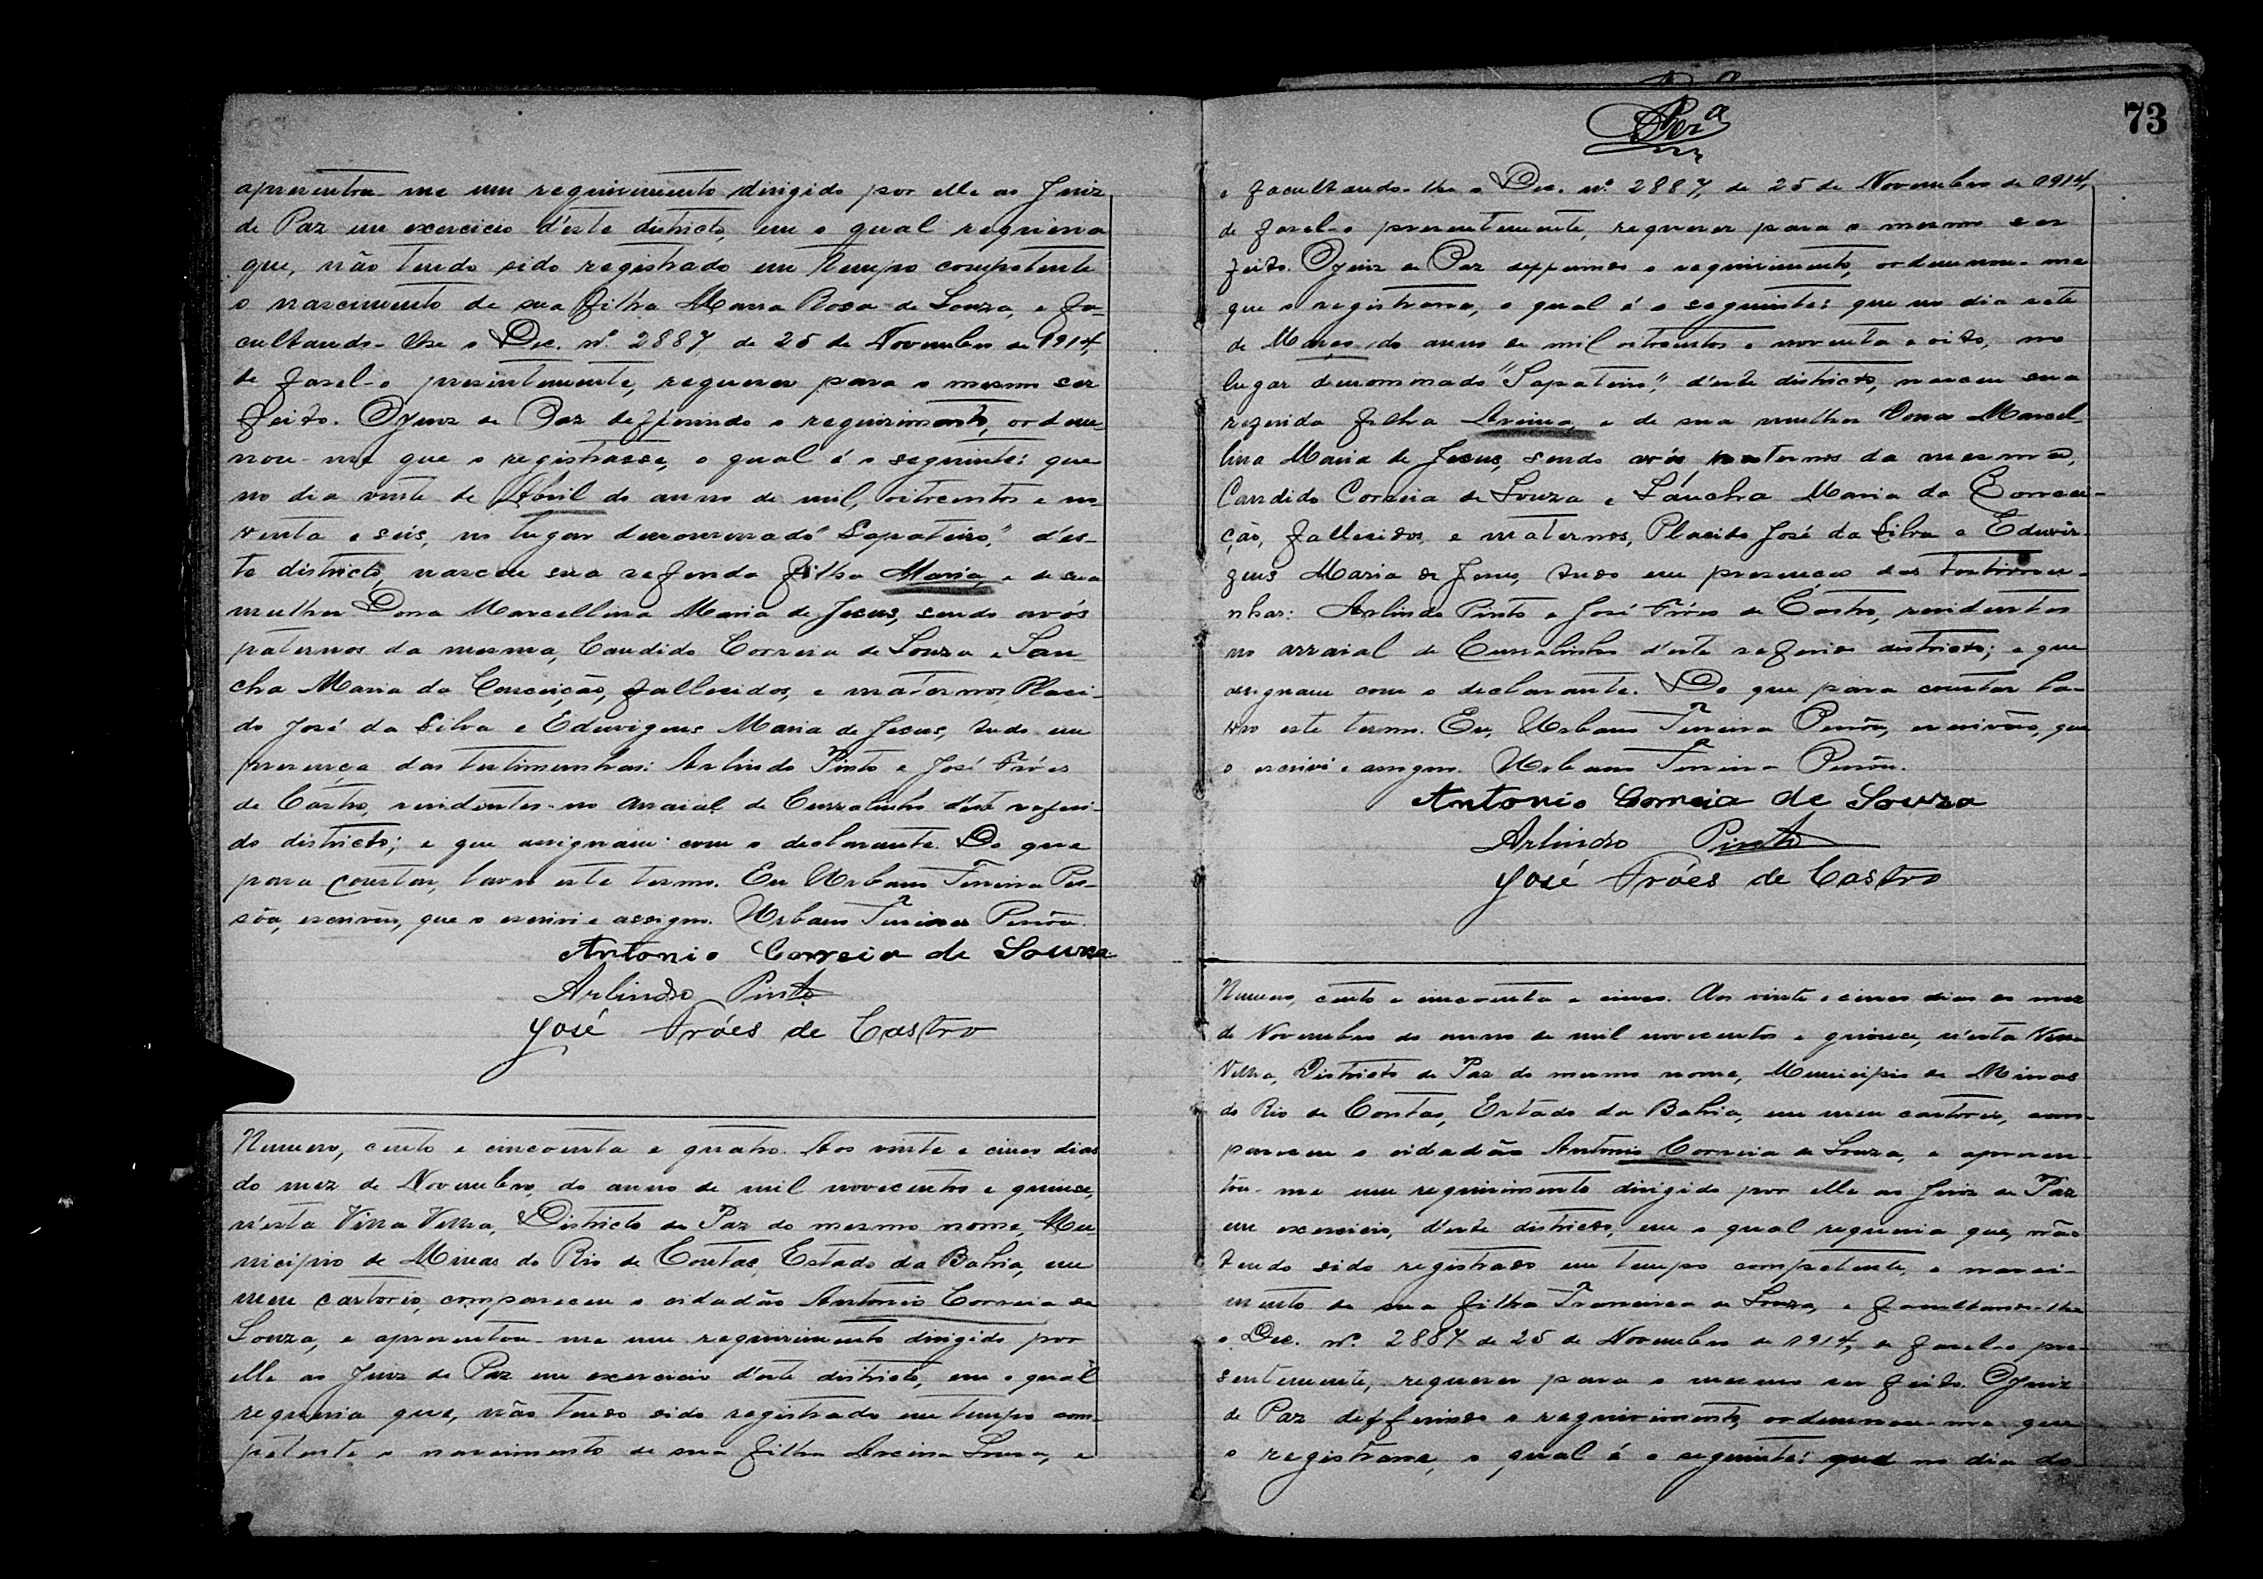 apresentou-me um requirimento dirigido por elle ao Juiz
de Paz em exercicio d'este districto, em o qual requeria
que, não tendo sido registrado em tempo competente
o nascimento de sua filha Maria Rosa de Souza, e fa-
cultando-lhe o Dec. nº 2887, de 25 de Novembro de 1914,
de fasel-o presintemente, requerer para o mesmo ser
feito. O Juiz de Paz defferindo o requirimento, orde-
nou-me que o registrasse, o qual é o seguinte: que
no dia vinte de Abril do anno de mil, oitocentos e no-
venta e seis, no lugar denominado "Sapateiro," d'es-
te districto, nasceu sua referida filha Maria, e de sua
mulher Dona Marcellina Maria de Jesus, sendo avós
paternos da mesma, Candido Correia de Souza e San-
cha Maria da Conceição, fallecidos, e maternos, Placi-
do José da Silva e Eduvigens Maria de Jesus, tudo em
presença das testimunhas: Arlindo Pinto e José Fróes
de Castro, residentes no arraial de Curralinho d'este referi-
do districto; e que assignam com o declarante. Do que
para constar, lavro este termo. Eu Urbano Ferreira Pes-
sôa, escrivão, que o escrivi e assigno. Urbano Ferreira Pessôa.
Antonio Correia de Souza
Arlindo Pinto
José Fróes de Castro
Numero, cento e cincoenta e quatro. Aos vinte e cinco dias
do mez de Novembro, do anno de mil novecentos e quinze,
n'esta Villa Velha, Districto de Paz do mesmo nome, Mu-
nicipio de Minas do Rio de Contas, Estado da Bahia, em
meu cartorio, compareceu o cidadão Antonio Correia de
Souza, e apresentou-me um requirimento dirigido por
elle ao Juiz de Paz em exercicio d'este districto, em o qual
requeria que, não tendo sido registrado em tempo com-
petente o nascimento de sua filha Souza, e
73
e facultando-lhe o Dec. nº 2887, de 25 de Novembro de 1914,
de fasel-o presentemente, requerer para o mesmo ser
feito. O Juiz de Paz defferindo o requirimento, ordenou-me
que o registrasse, o qual é o seguinte: que no dia sete
de Março do anno de mil oitocentos e noventa e oito, no
lugar denominado "Sapateiro," d'este districto, nasceu sua
referida filha e de sua mulher Dona Marcel-
lina Maria de Jesus, sendo avós paternos da mesma,
Candido Correia de Souza e Sáncha Maria da Concei-
ção, fallecidos, e maternos, Placido José da Silva e Eduvir-
gens Maria de Jesus, tudo em presença das testimu-
nhas: Arlindo Pinto e José Fróes de Castro, residentes
no arraial de Curralinho d'este referido districto; e que
assignam com o declarante. Do que para constar la-
vro este termo. Eu, Urbano Ferreira Pessôa, escrivão, que
o escrivi e assigno. Urbano Ferreira Pessôa.
Antonio Correia de Souza
Arlindo Pinto
José Fróes de Castro
Numero, cento e cincoenta e cinco. Aos vinte e cinco dias do mez
de Novembro do anno de mil novecentos e quinze, n'esta Villa
Velha, Districto de Paz do mesmo nome, Municipio de Minas
do Rio de Contas, Estado da Bahia, em meu cartorio, com-
pareceu o cidadão Antonio Correia de Souza, e apresen-
tou-me um requirimento dirigido por elle ao Juiz de Paz
em exercicio, d'este districto, em o qual requeria que, não
tendo sido registrado em tempo competente, o nasci-
mento de sua filha Francisca de Souza, e facultando-lhe
o Dec. nº 2887 de 25 de Novembro de 1914, de fasel-o pre-
sentemente, requerer para o mesmo ser feito. O Juiz
de Paz defferindo o requirimento, ordenou-me que
o registrasse, o qual é o seguinte: que no dia do